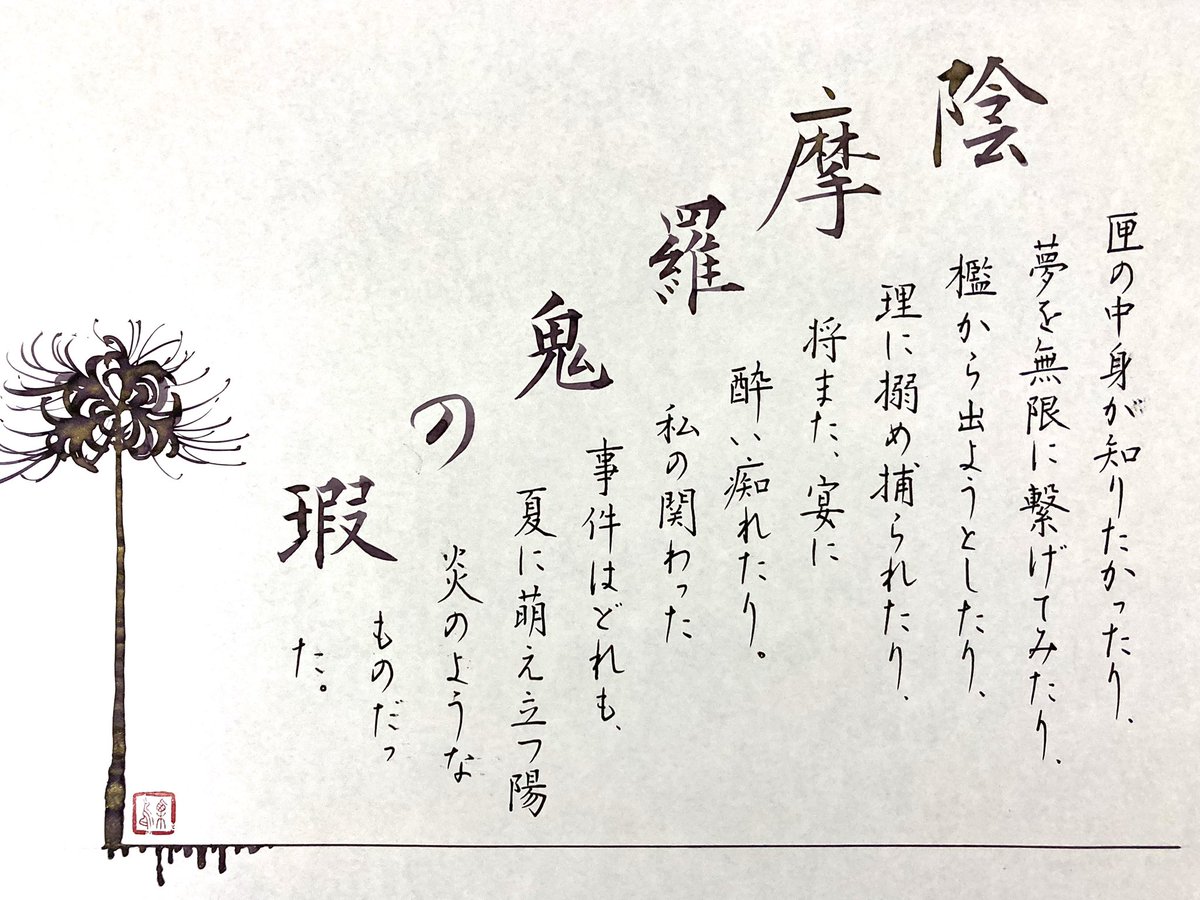 陰摩羅鬼の瑕
匣の中身が知りたかったり、
夢を無限に繋げてみたり、
檻から出ようとしたり、
理に搦め捕られたり、
将また、宴に
酔い痴れたり。
私の関わった
事件はどれも、
夏に萌え立つ陽
炎のような
ものだっ
た。